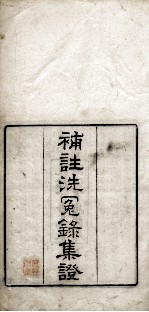 補註洗冤錄集證